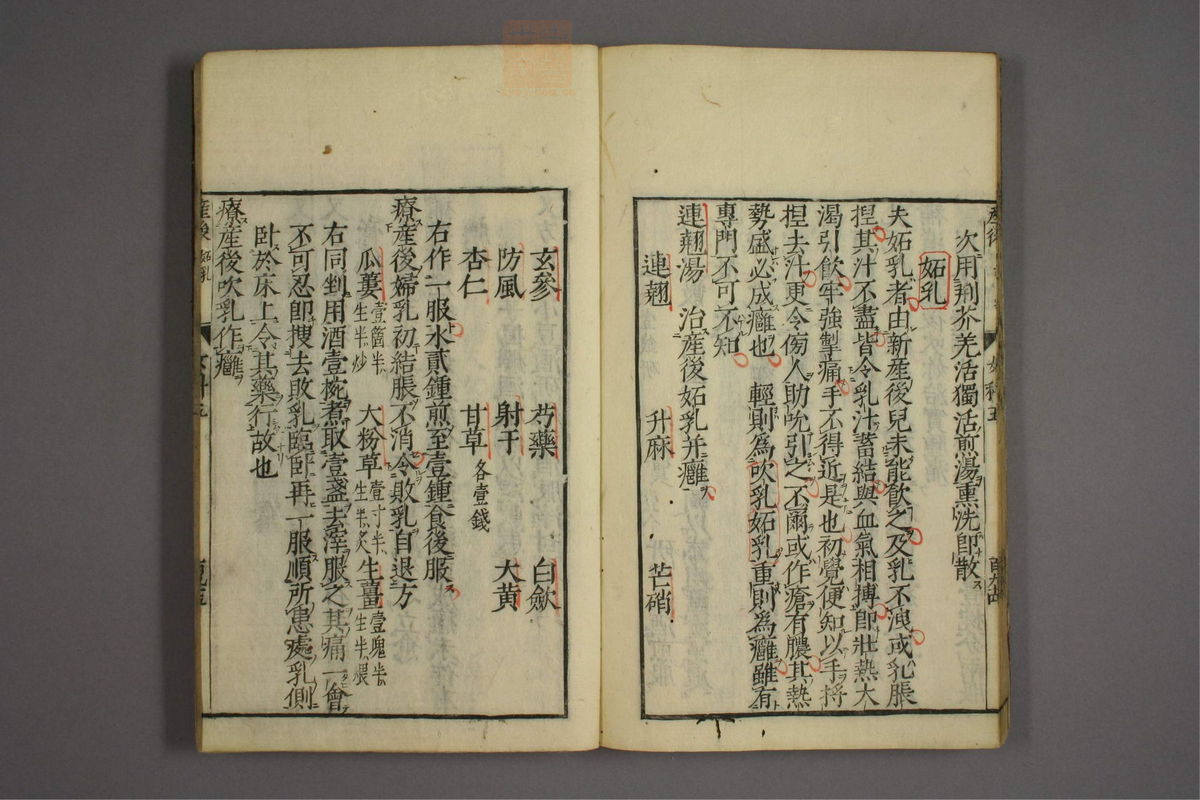 次用荆芥羌活獨活煎湯熏洗即散
妬乳
夫妬乳者由新産後兒未能飲之及乳不洩或乳脹
捏其汁不盡皆令乳汁蓄結與血氣相搏即壯熱大
渴引飲牢強掣痛手不得近是也初覺便知以手捋
捏去汁更令傍人助吮引之不爾或作瘡有膿其熱
勢盛必成癰也　輕則為吹乳妬乳重則為癰雖有
專門不可不知
連翹湯　治産後妬乳并癰
連翹　升麻　芒硝
玄參　芍藥　白斂
防風　射干　大黄
杏仁　甘草各壹錢
右作一服水貳鍾煎至壹鍾食後服
療産後婦乳初結脹不消令敗乳自退方
瓜蔞壹箇半生半炒　大粉草壹寸半生半炙　生薑壹塊半生半煨
右同剉用酒壹椀煮取壹盞去滓服之其痛一會
不可忍即搜去敗乳臨卧再一服順所患處乳側
卧於床上令其藥行故也
療産後吹乳作癰
産後 妬乳